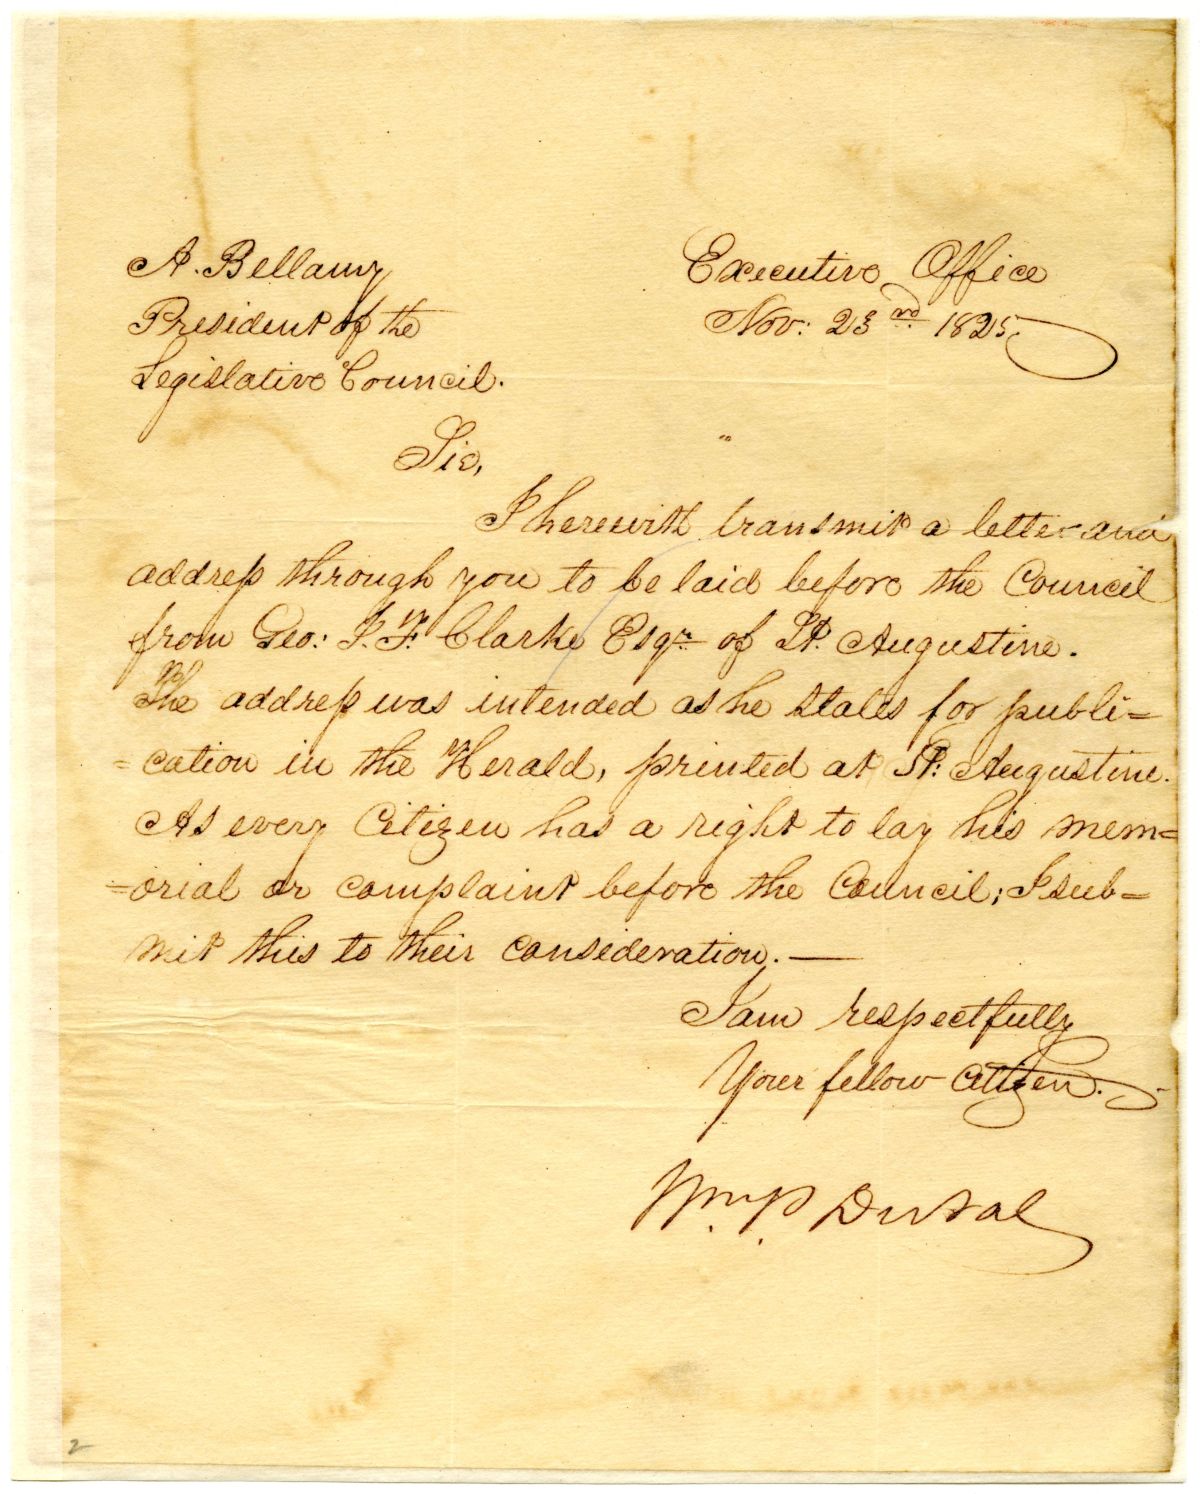 A. Bellamy
President of the
Legislative Council.
Executive Office
Nov: 23rd 1825.
Sir,
I herewith transmit a letter and
address through you to be laid before the Council
from Geo: J. F. Clarke Esqr. of St. Augustine.
The address was intended as he states for publi=
=cation in the Herald, printed at St: Augustine.
As every Citizen has a right to lay his mem=
=orial or complaint before the Council; I sub=
mit this to their consideration. —
I am respectfully
Your fellow Citizen.
Wm. P. DuVal
2